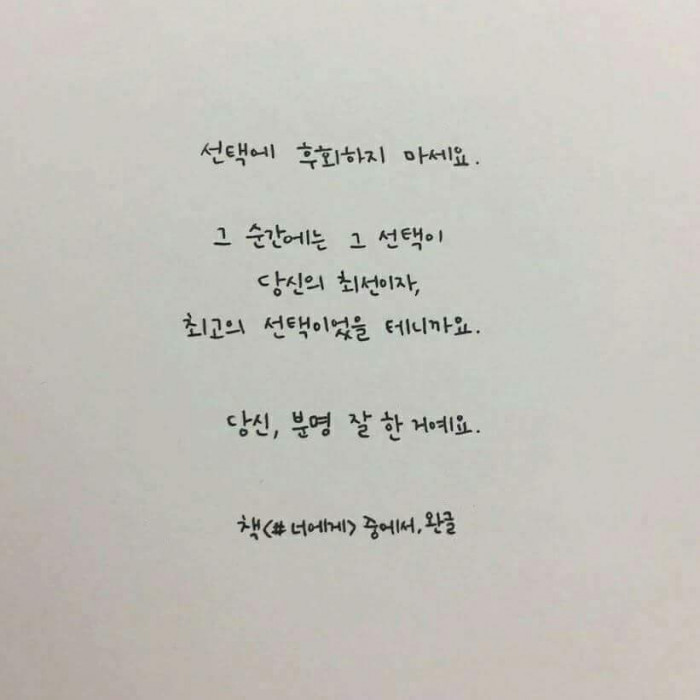 선택에 후회하지 마세요.
그 순간에는 그 선택이
당신의 최선이자,
최고의 선택이었을 테니까요.
당신, 분명 잘 한 거예요.
책<#너에게> 중에서, 완글